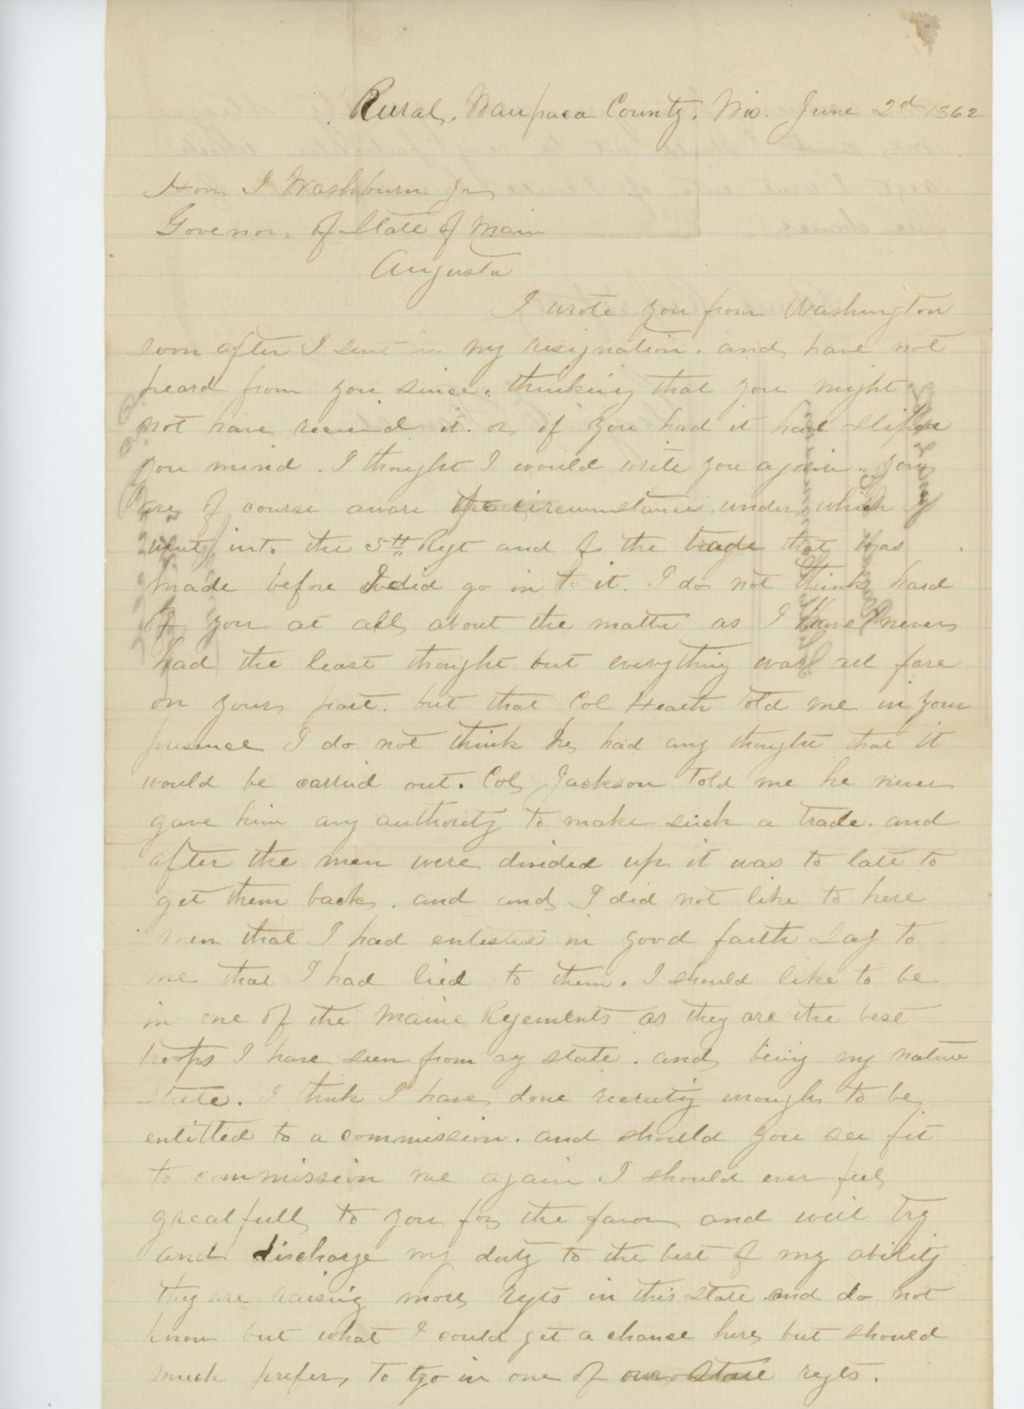 Rural, Waupaca County, Wis. June 2d 1862
Hon I Washburn Jr
Govenor of State of Main
Augusta
I wrote you from Washington
soon after I sent in my resignation. and have not
heard from you since. thinking that you might
not have received it. or if you had it had slipped
you mind. I thought I would write you again. you
are of course aware the circumstance under which I
went into the 5th Regt and of the trade that was
made before I did go in to it. I do not think hard
of you at all about the matter as I have never
had the least thought but everything was all fare
on your part. but that Col Heath told me in your
presence I do not think he had any thought that it
would be carried out. Col Jackson told me he never
gave him any authority to make such a trade. and
after the men were divided up it was to late to
get them back. and and I did not like to here
men that I had enlisted in good faith Say to
me that I had lied to them. I should like to be
in one of the Maine Regements as they are the best
troops I have seen from ay state. and being my native
state. I think I have done recruitig enough to be
entitled to a commission. and should you see fit
to commission me again I should ever feel
greatfull to you for the favor and will try
and discharge my duty to the best of my ability
they are raising more regts in this State and do not
know but what I could get a chanse here but should
much prefer to go in one of our State regts.